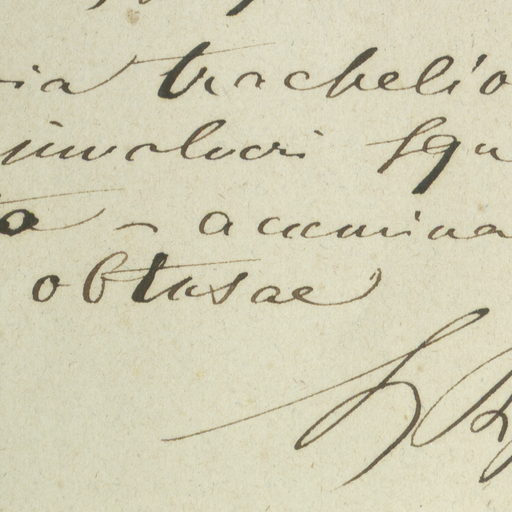 ia trachelio
involucri squ
ta - acumina
obtusae